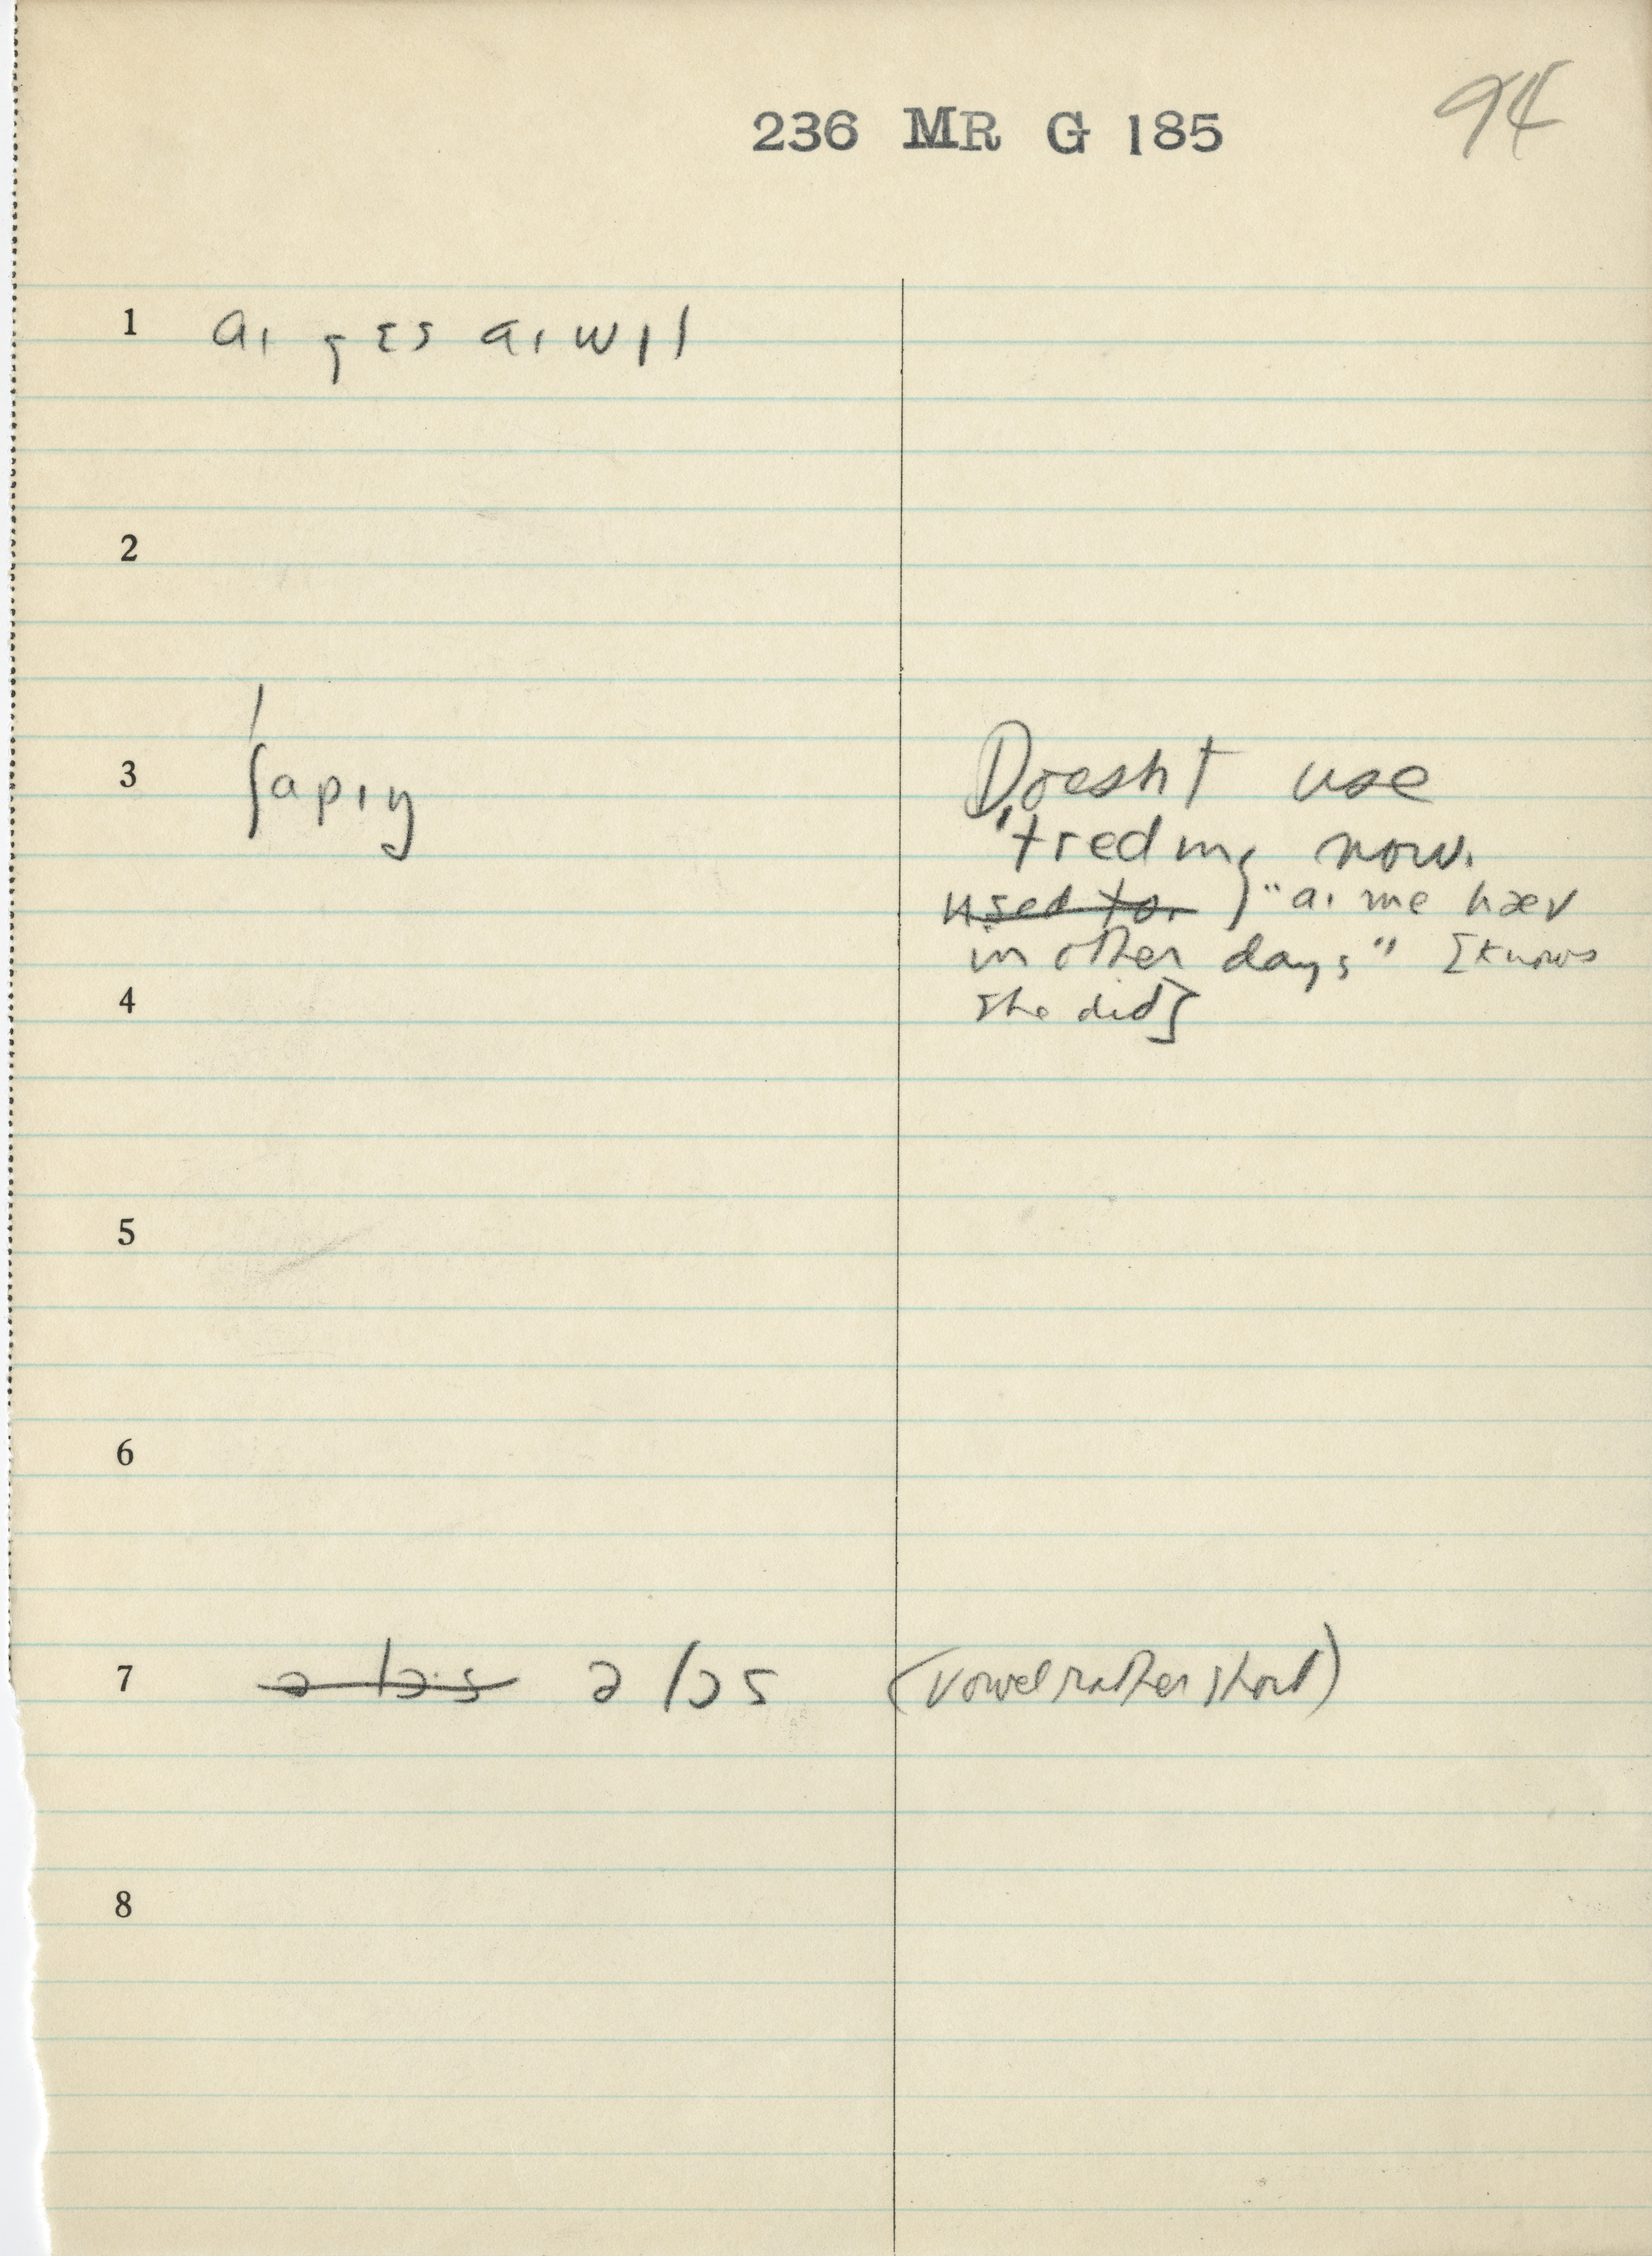 94
236 MR G 185
1 aɪ gɛs aɪ wɪl
2
3 ˈʃapɪŋ
Doesn't use
'tredɪŋ now.
used to. } "aɪ me hæv
in other days" [knows
she did]
4
5
6
7 ə lɔ·s ə lɔs (vowel rather short)
8